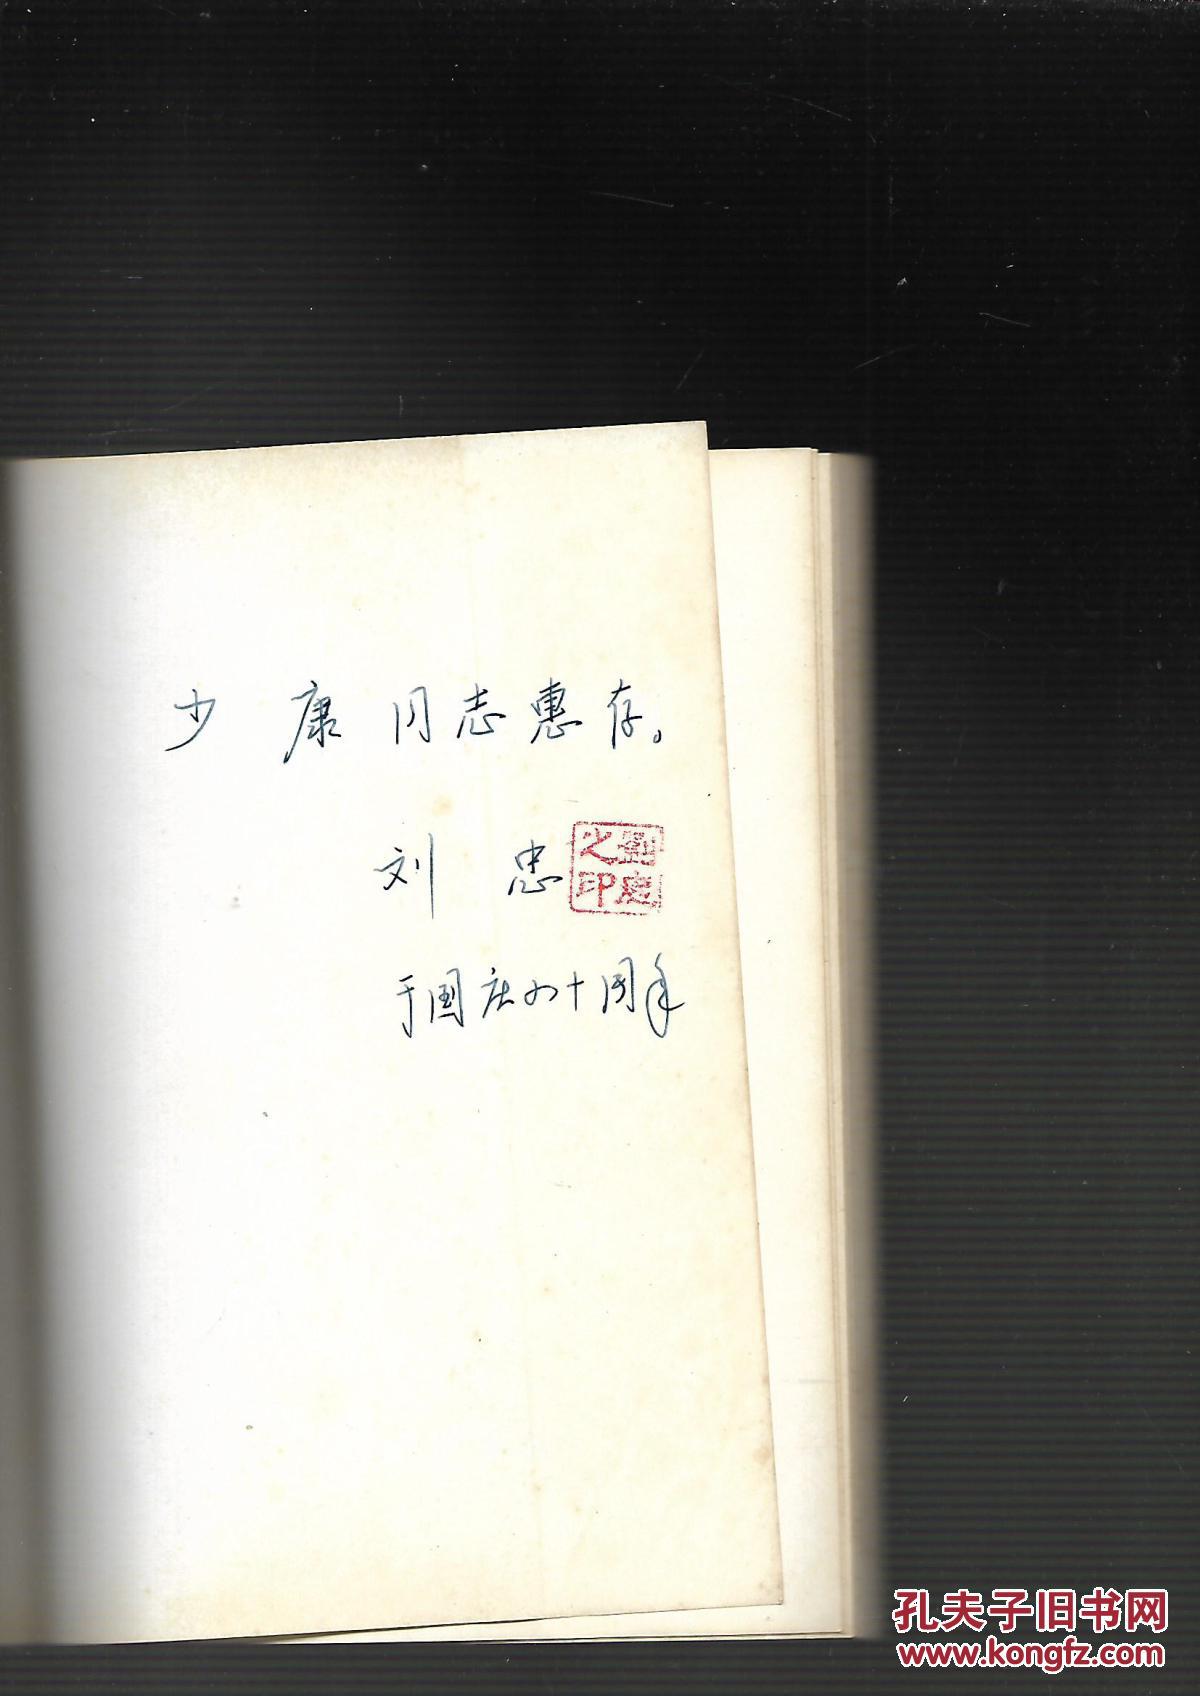 少康同志惠存。
刘忠
之印
于国庆四十周年
孔夫子旧书网
www.kongfz.com